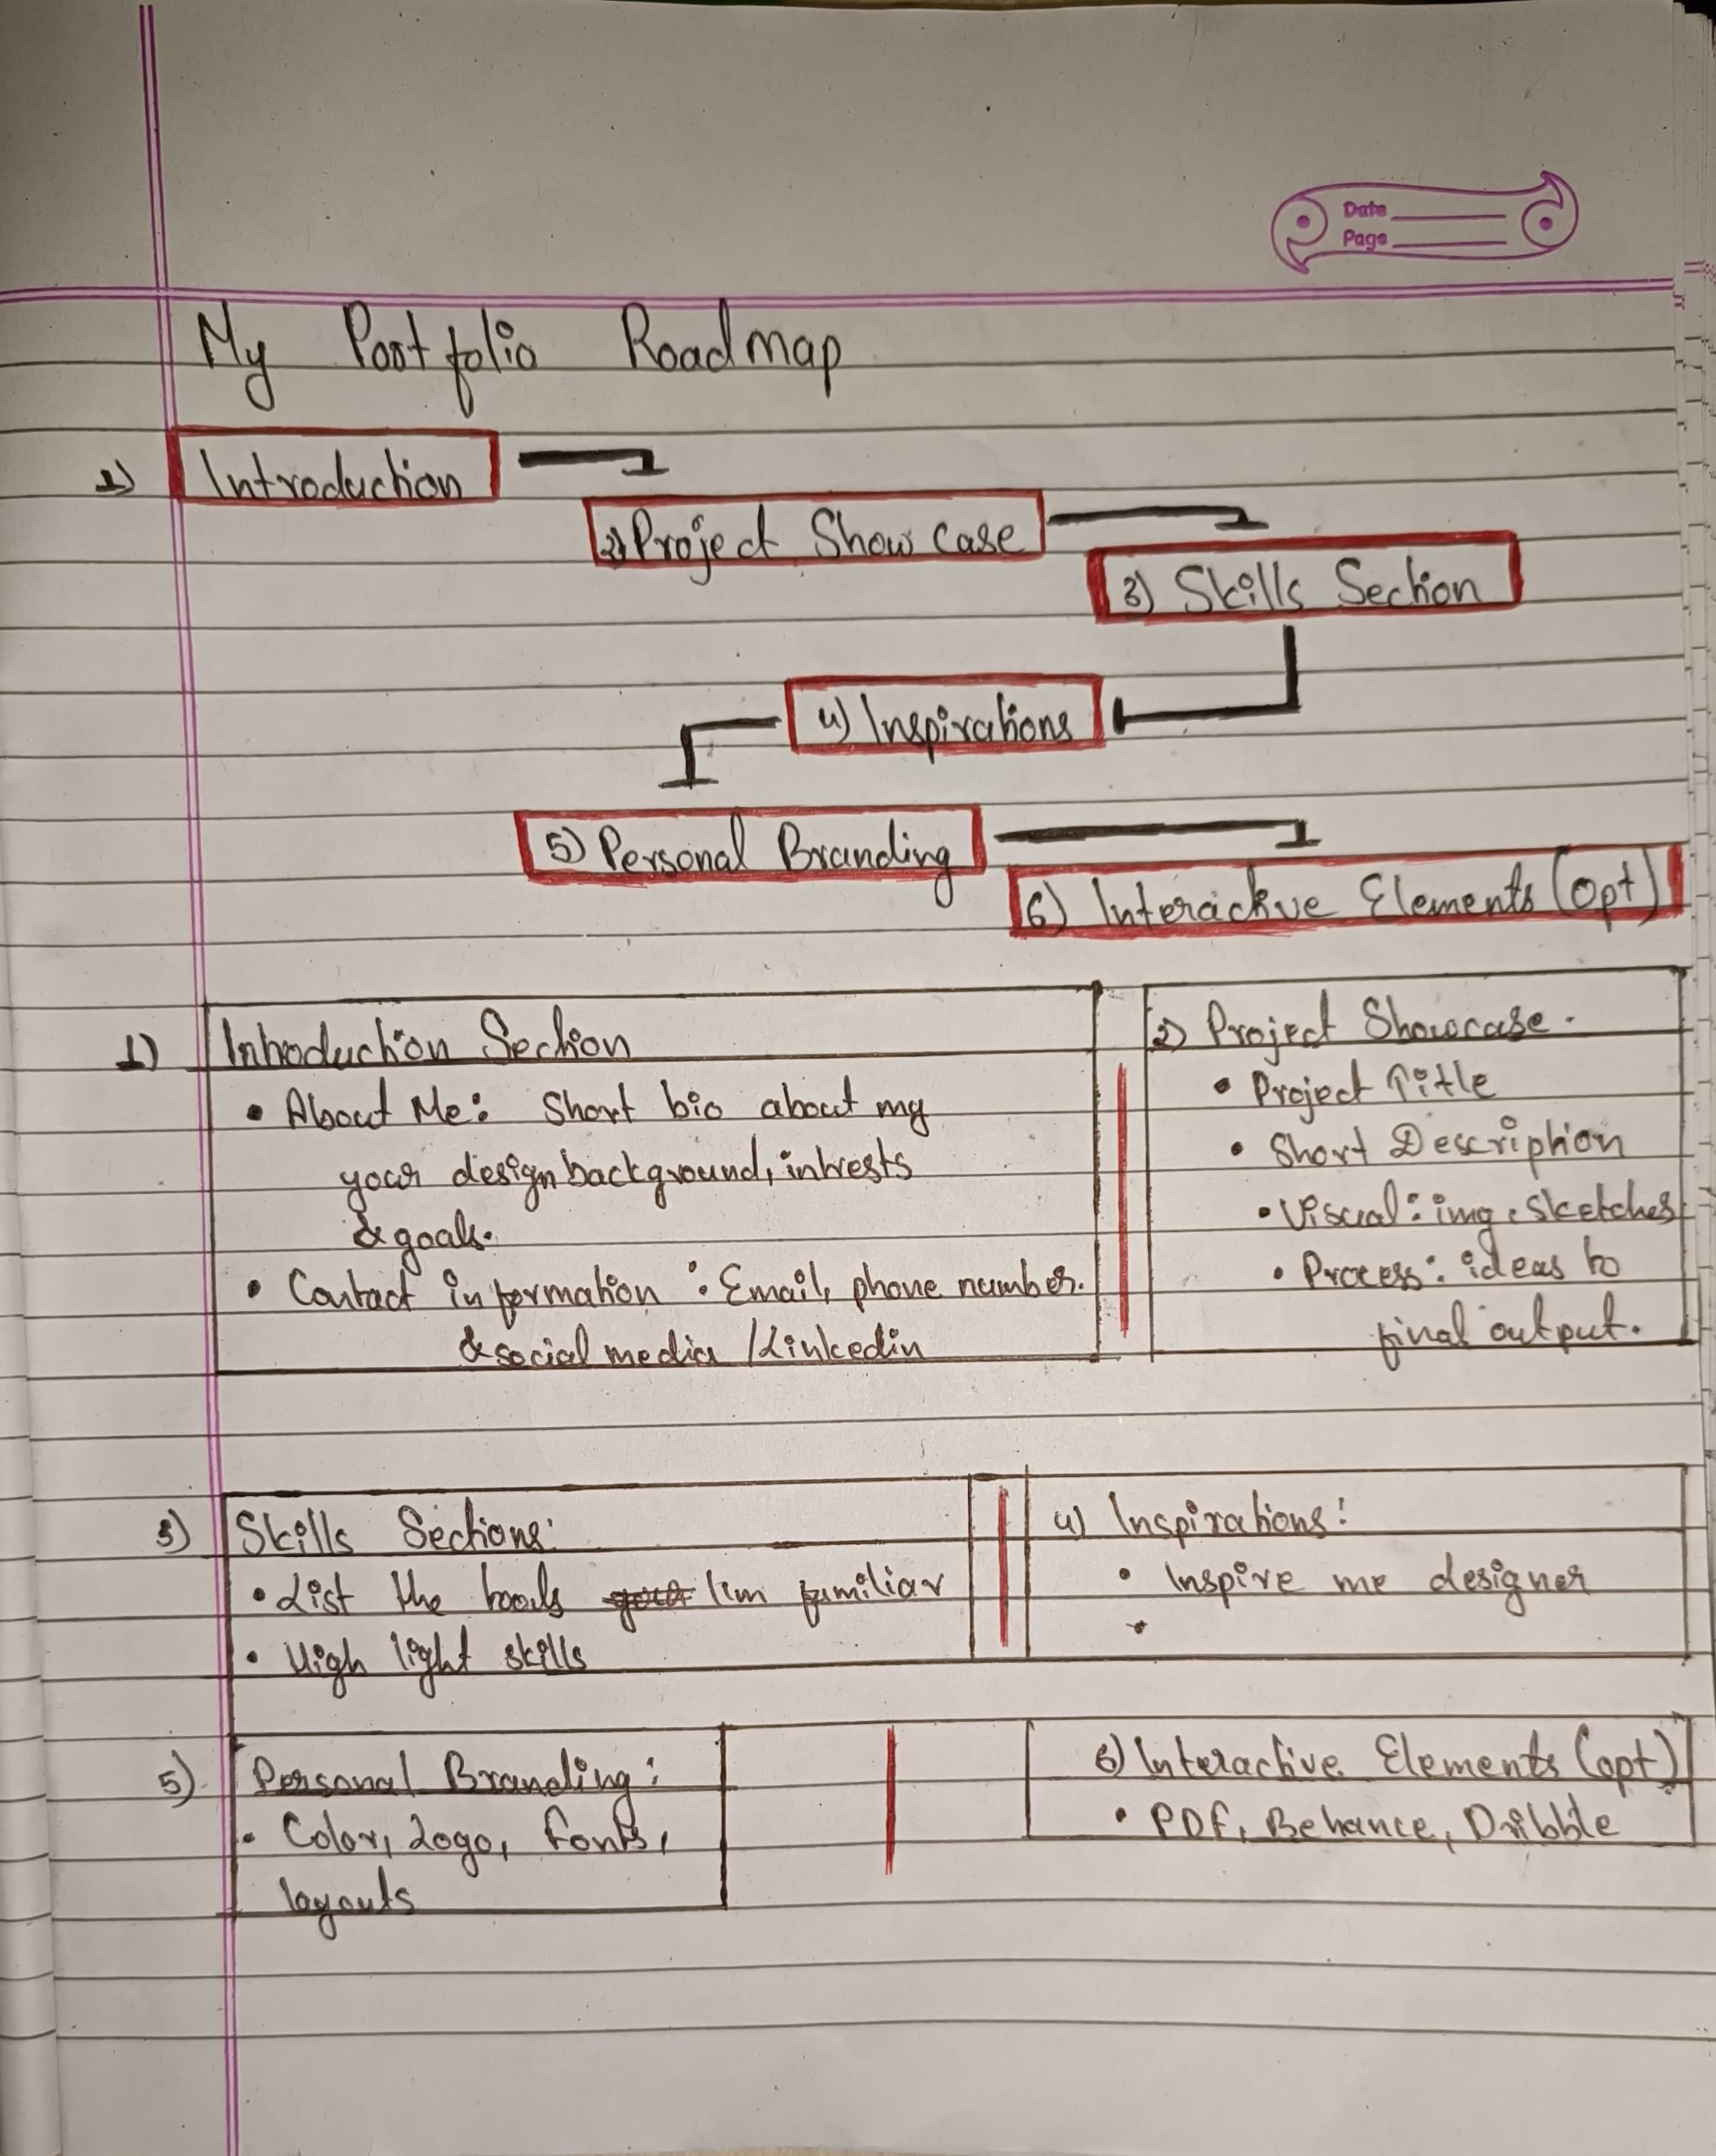 Date
Page
My Portfolio Roadmap
1) Introduction
2) Project Show case
3) Skills Section
4) Inspirations
5) Personal Branding
6) Interactive Elements (opt)
1) Introduction Section
• About Me: Short bio about my
your design background, intrests
& goals.
• Contact information : Email, phone number.
& social media / Linkedin
2) Project Showcase.
• Project Title
• Short Description
• Viscual : img, sketches
• Process : ideas to
final output.
3) Skills Sections:
• List the tools your I'm familiar
• High light skills
4) Inspirations:
• Inspire me designer
•
5) Personal Branding:
• Color, Logo, Fonts,
layouts
6) Interactive Elements (opt)
• PDF, Behance, Dribble